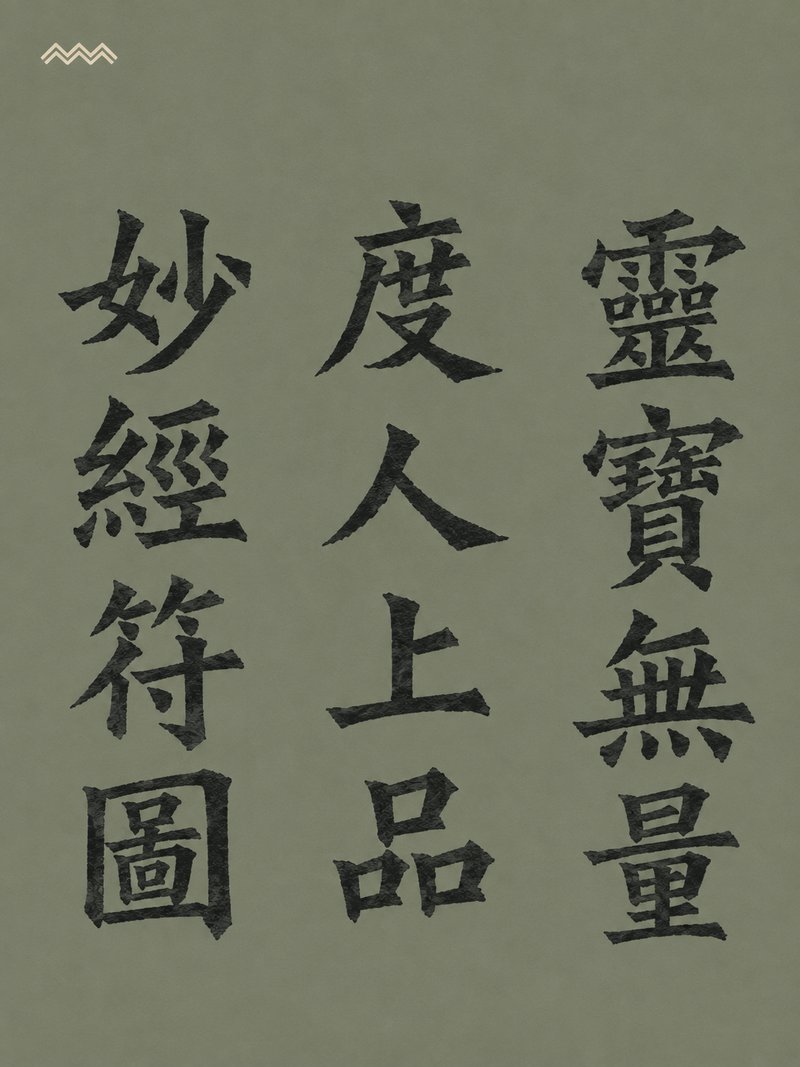 靈寶無量
度人上品
妙經符圖